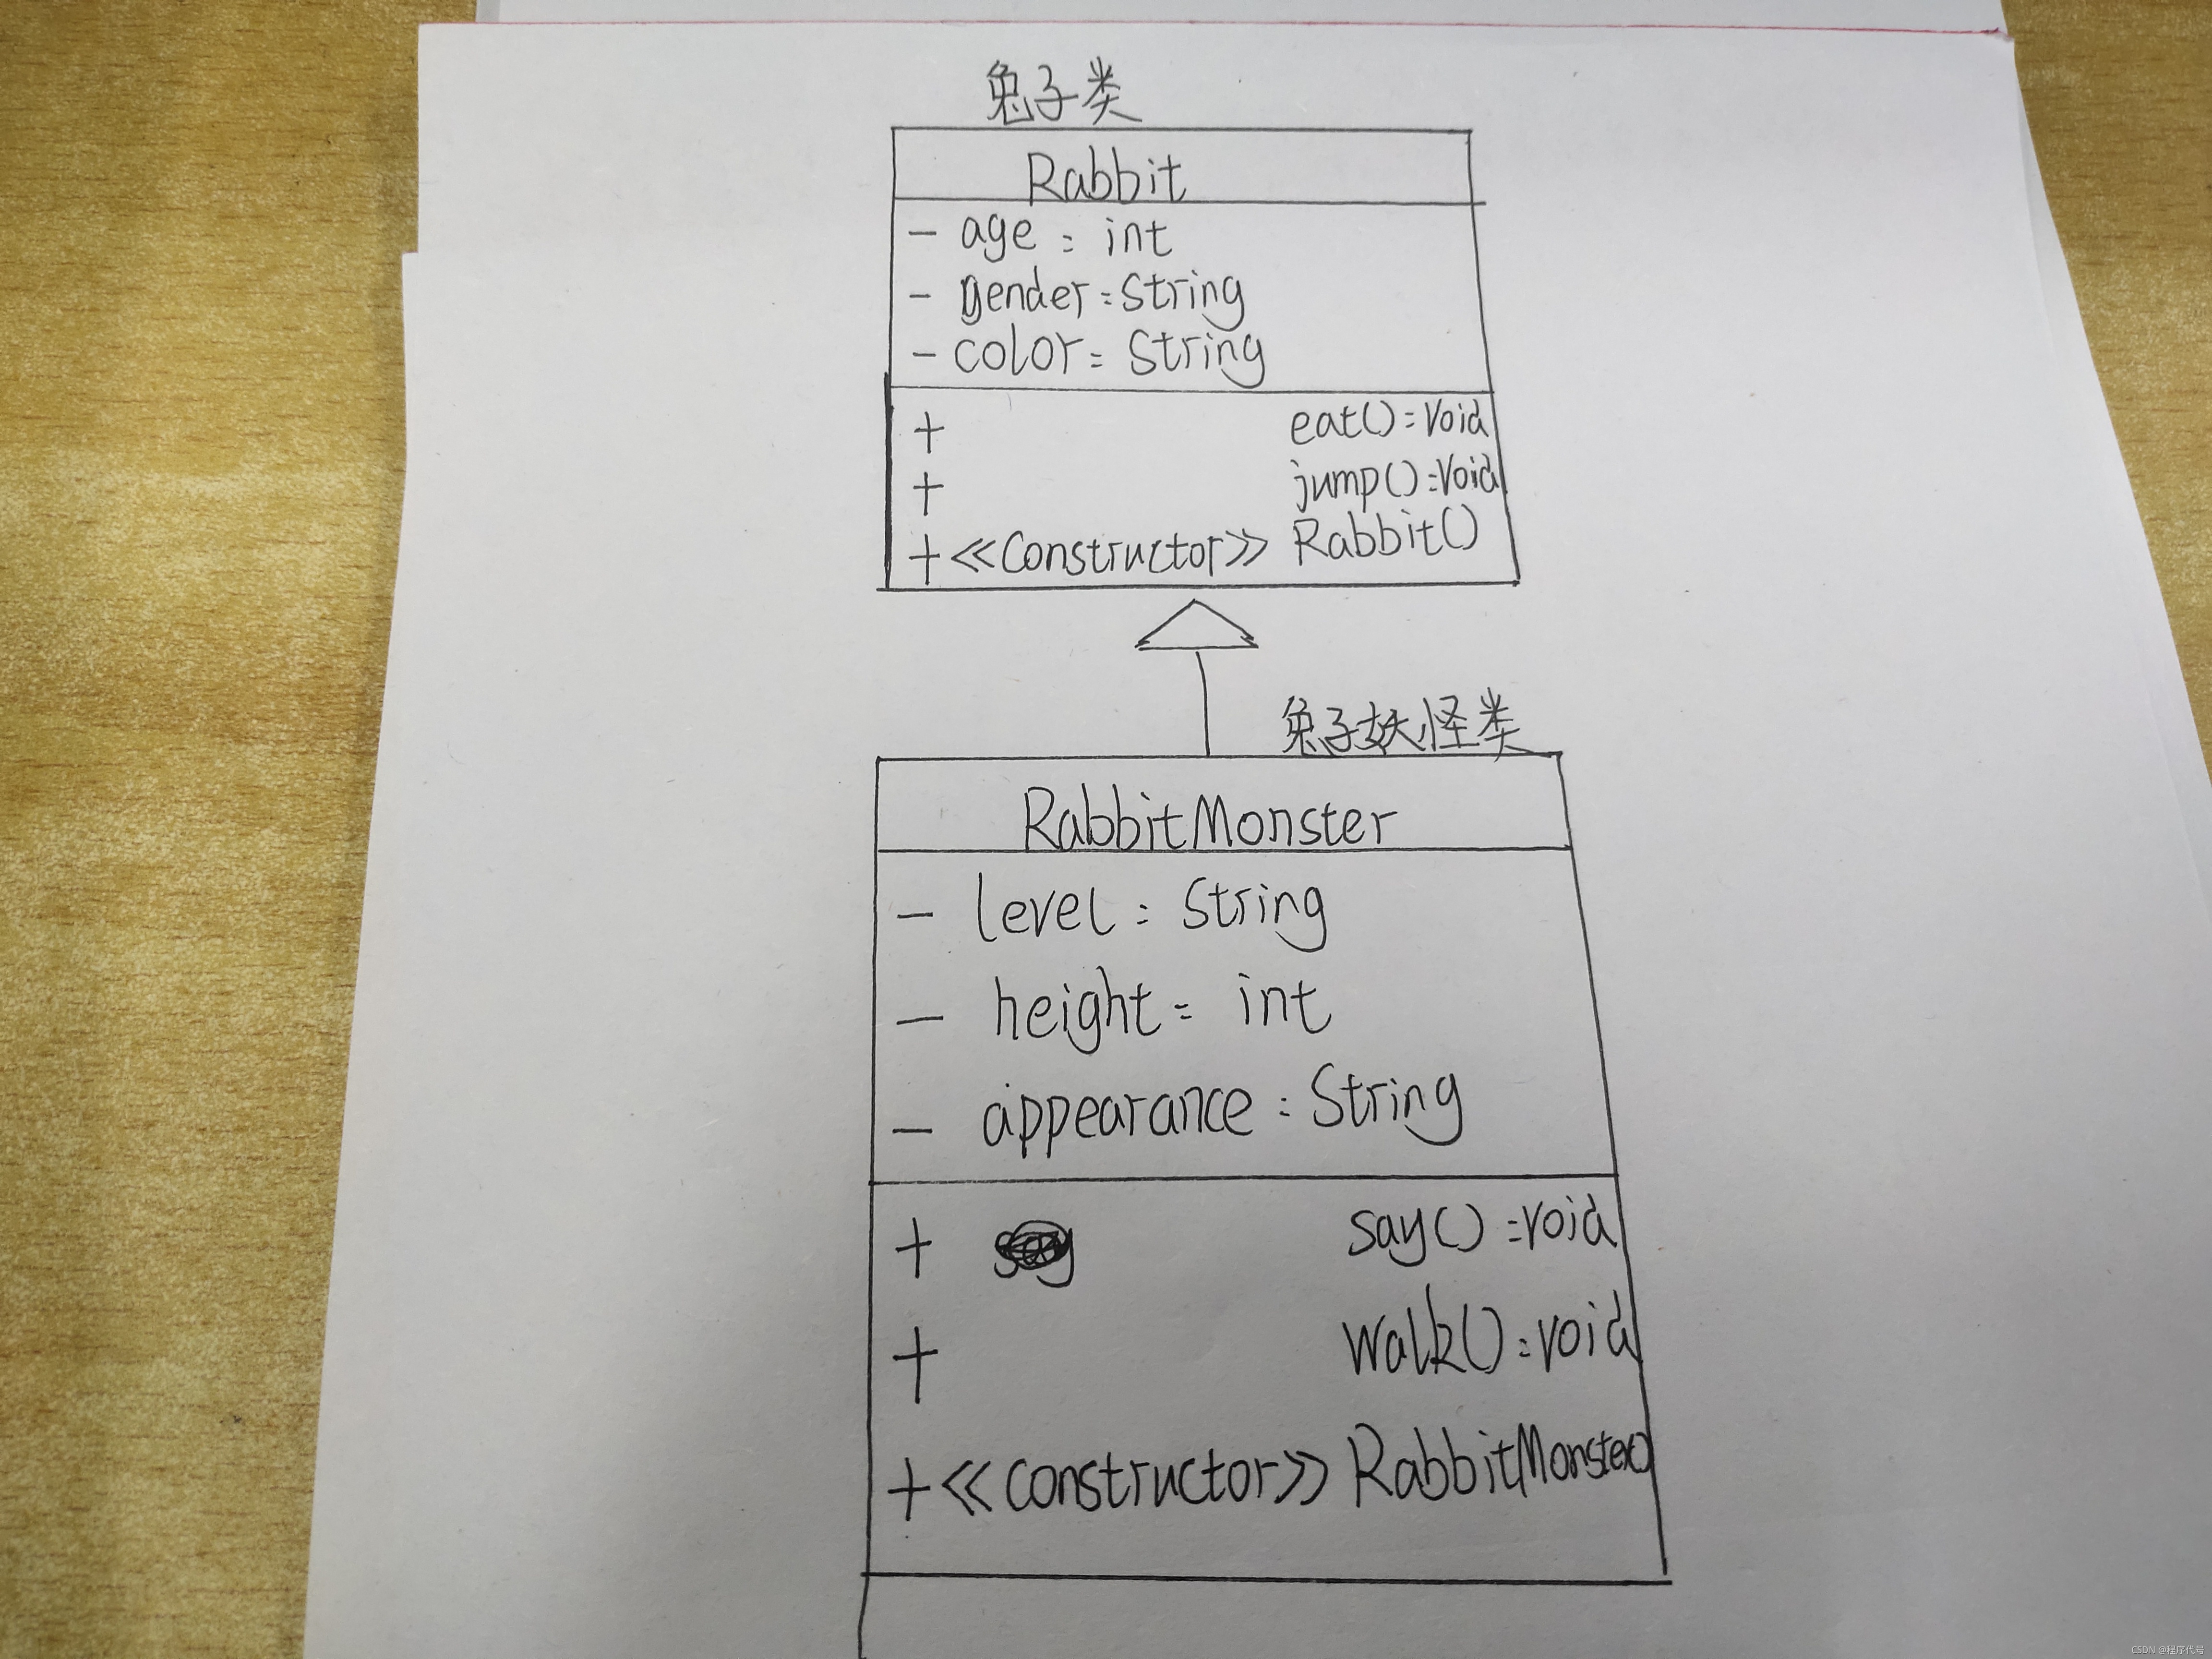 兔子类
Rabbit
- age : int
- gender : String
- color : String
+ eat() : void
+ jump() : void
+ <<Constructor>> Rabbit()
兔子妖怪类
RabbitMonster
- level : String
- height : int
- appearance : String
+ say() : void
+ walk() : void
+ <<constructor>> RabbitMonster()
CSDN @程序代号